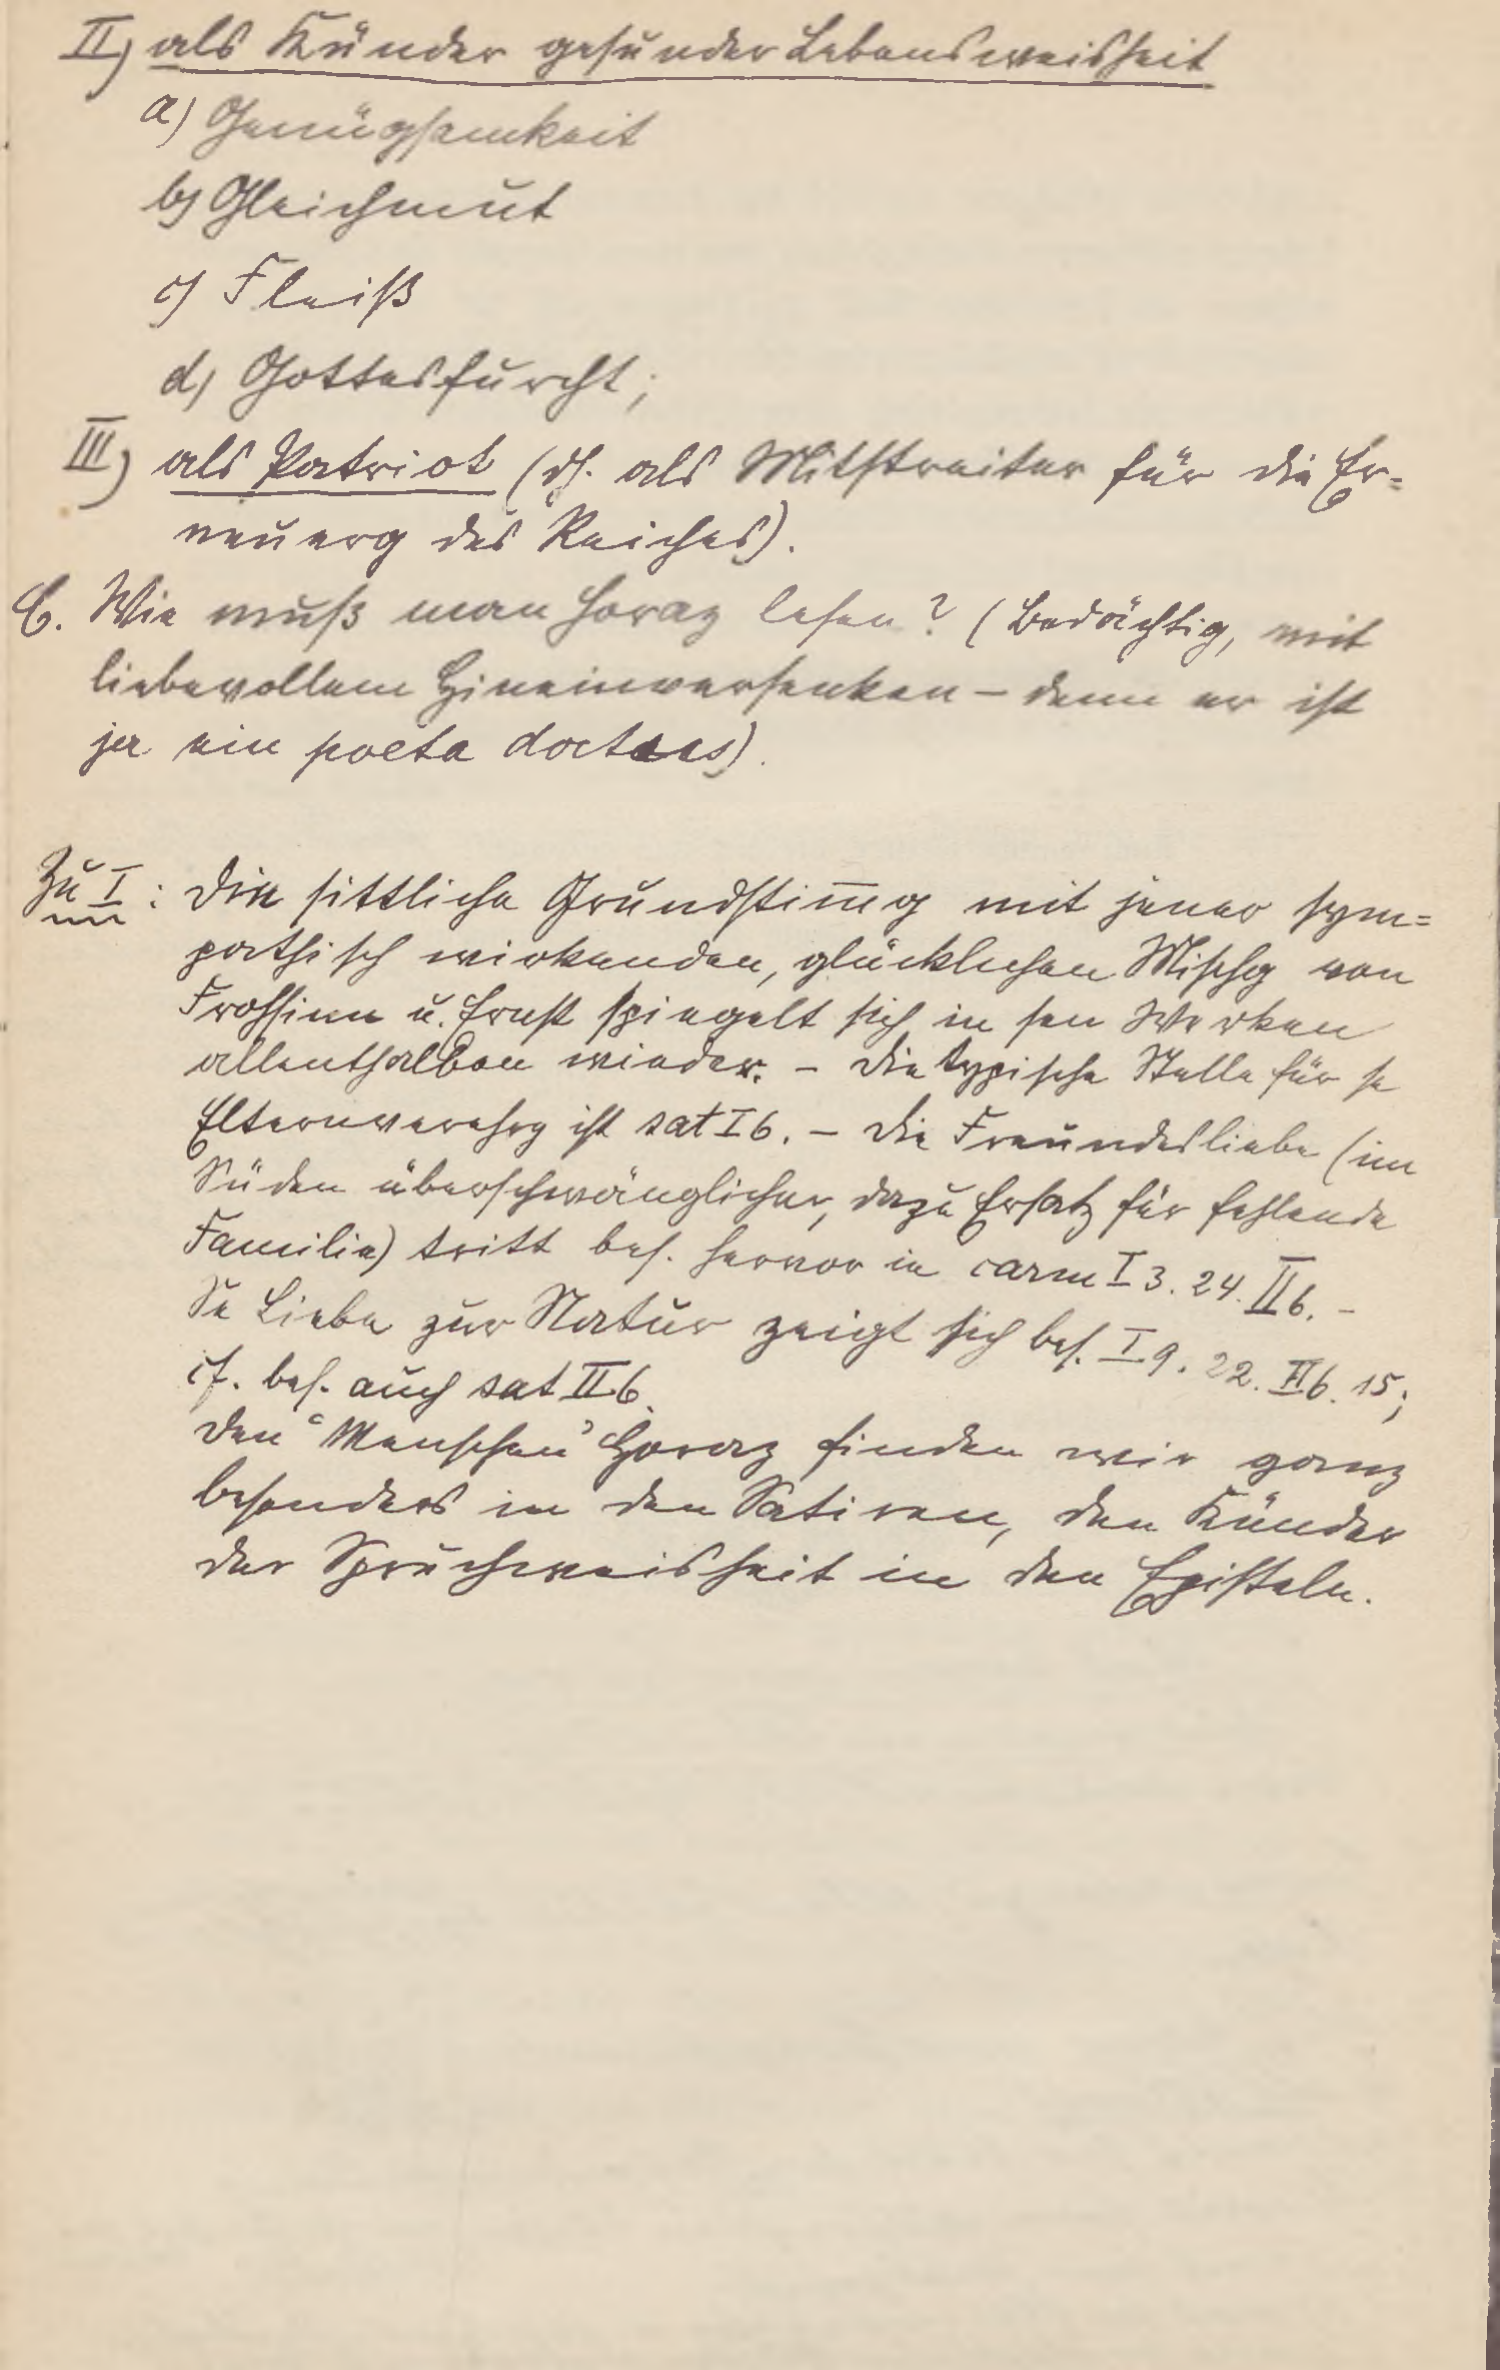 II) als Künder gesunder Lebensweisheit
a) Genügsamkeit
b) Gleichmut
c) Fleiß
d) Gottesfurcht;
III) als Patriot (dh. als Mitstreiter für die Er=
neuerg des Reiches).
C. Wie muß man Horaz lesen? (Bedächtig, mit
liebevollem Hineinversenken – denn er ist
ja ein poeta doctus).
Zu I: Die sittliche Grundstim̅g mit jener sym=
pathisch wirkenden, glücklichen Mischg von
Frohsinn u. Ernst spiegelt sich in sen Werken
allenthalben wieder. – Die typische Stelle für se
Elternverehrg ist sat I 6. – Die Freundesliebe (im
Süden überschwänglicher, dazu Ersatz für fehlende
Familie) tritt bes. hervor in carm I 3. 24. II 6. –
Se Liebe zur Natur zeigt sich bes. I 9. 22. II 6. 15;
cf. bes. auch sat II 6.
Den "Menschen" Horaz finden wir ganz
besonders in den Satiren, den Künder
der Spruchweisheit in den Episteln.